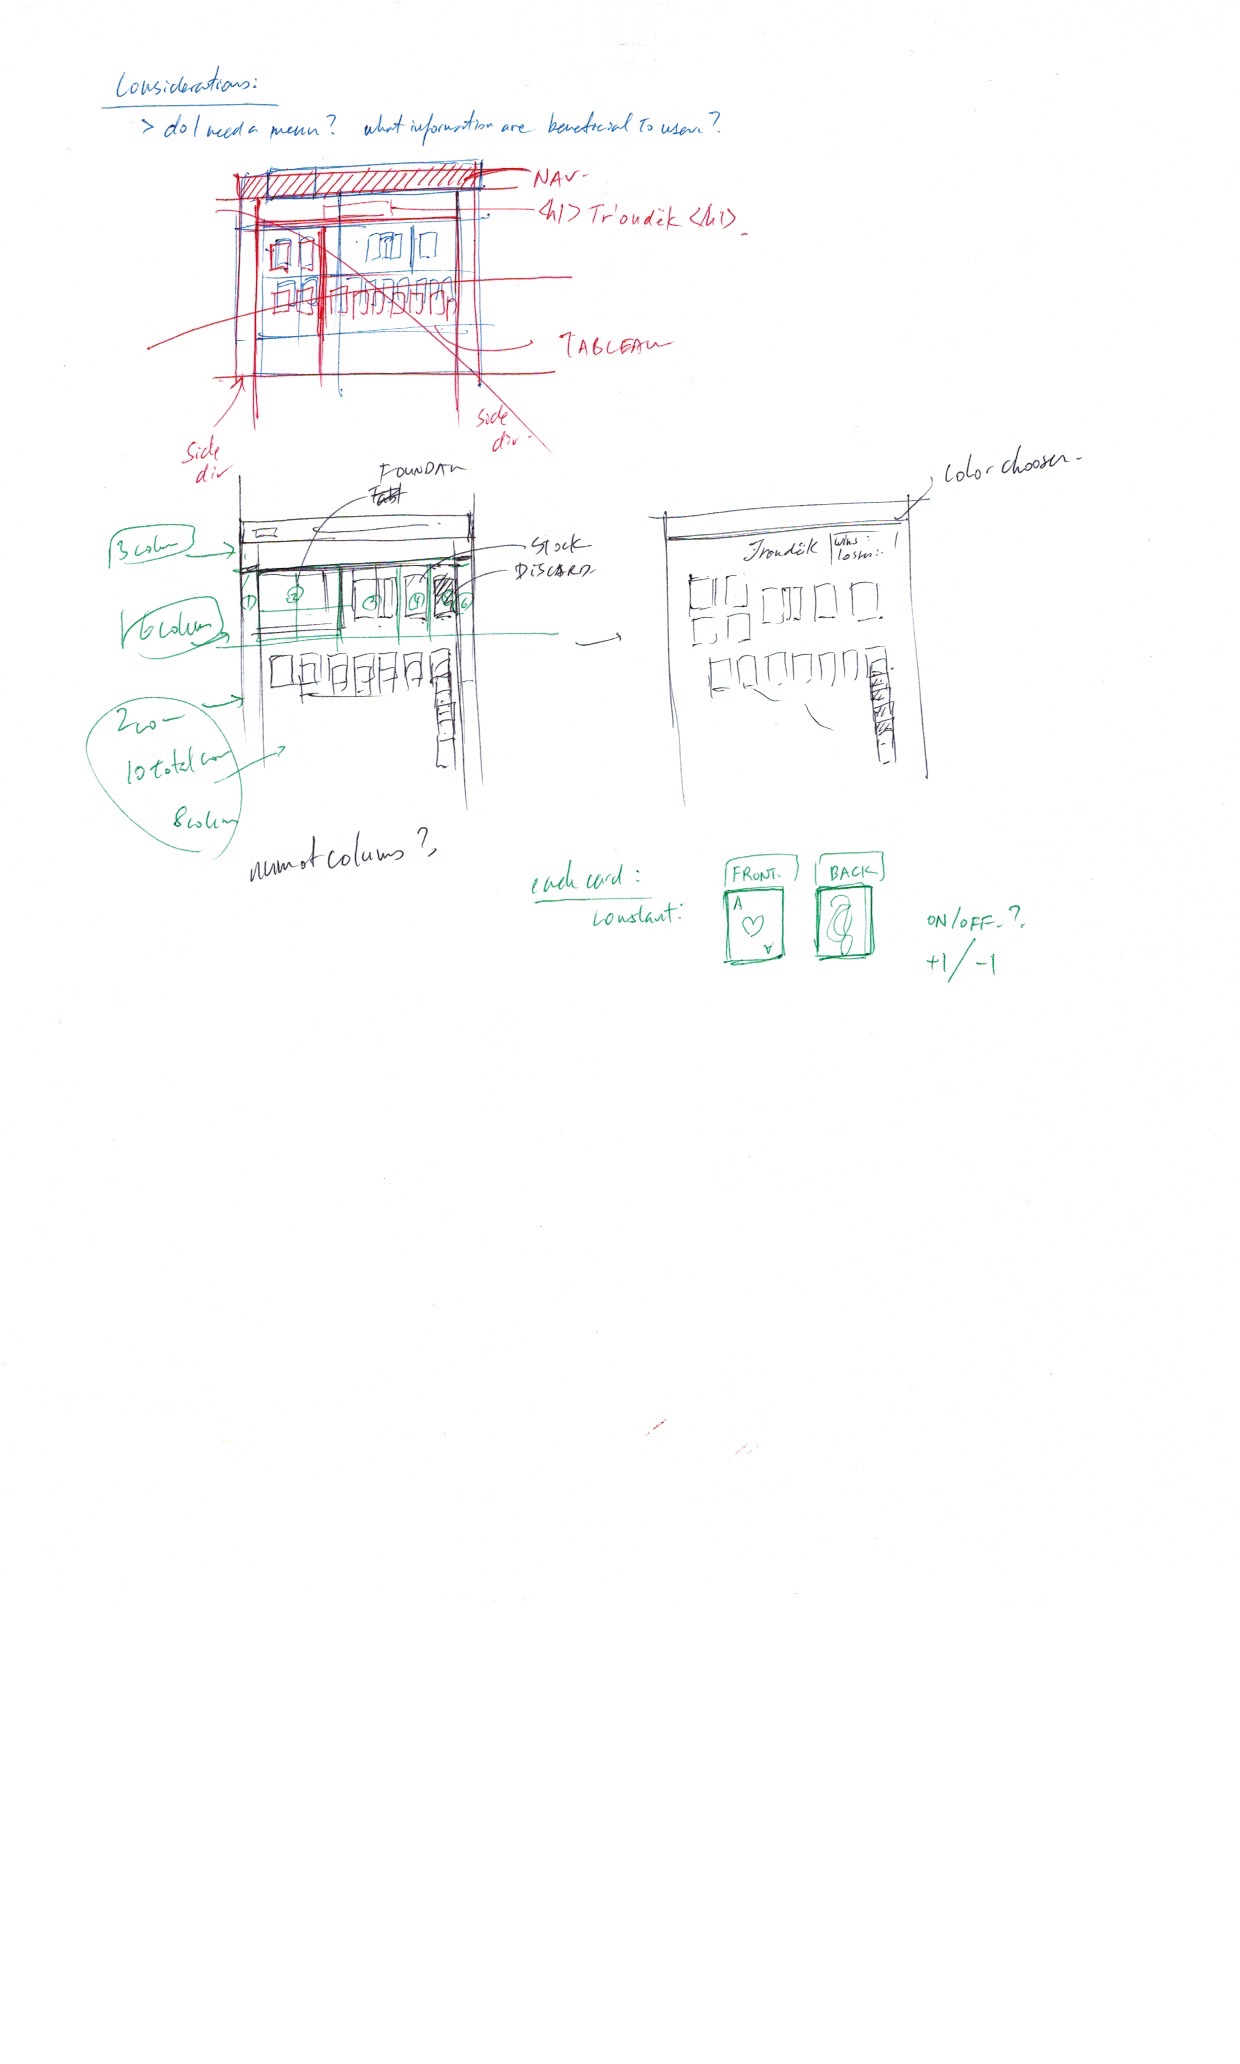 Considerations:
> do I need a menu? what information are beneficial to user?
NAV
<h1> Tr'ondëk <h1>
TABLEAU
side
div
side
div
FOUNDAT
3 colum
STOCK
DISCARD
1 2 3 4 6
6 column
2 co
10 total
8 colum
num of colums?
color chooser
Trondëk
wins:
losses:
each card:
constant:
FRONT.
BACK
A
A
ON/OFF?
+1/-1